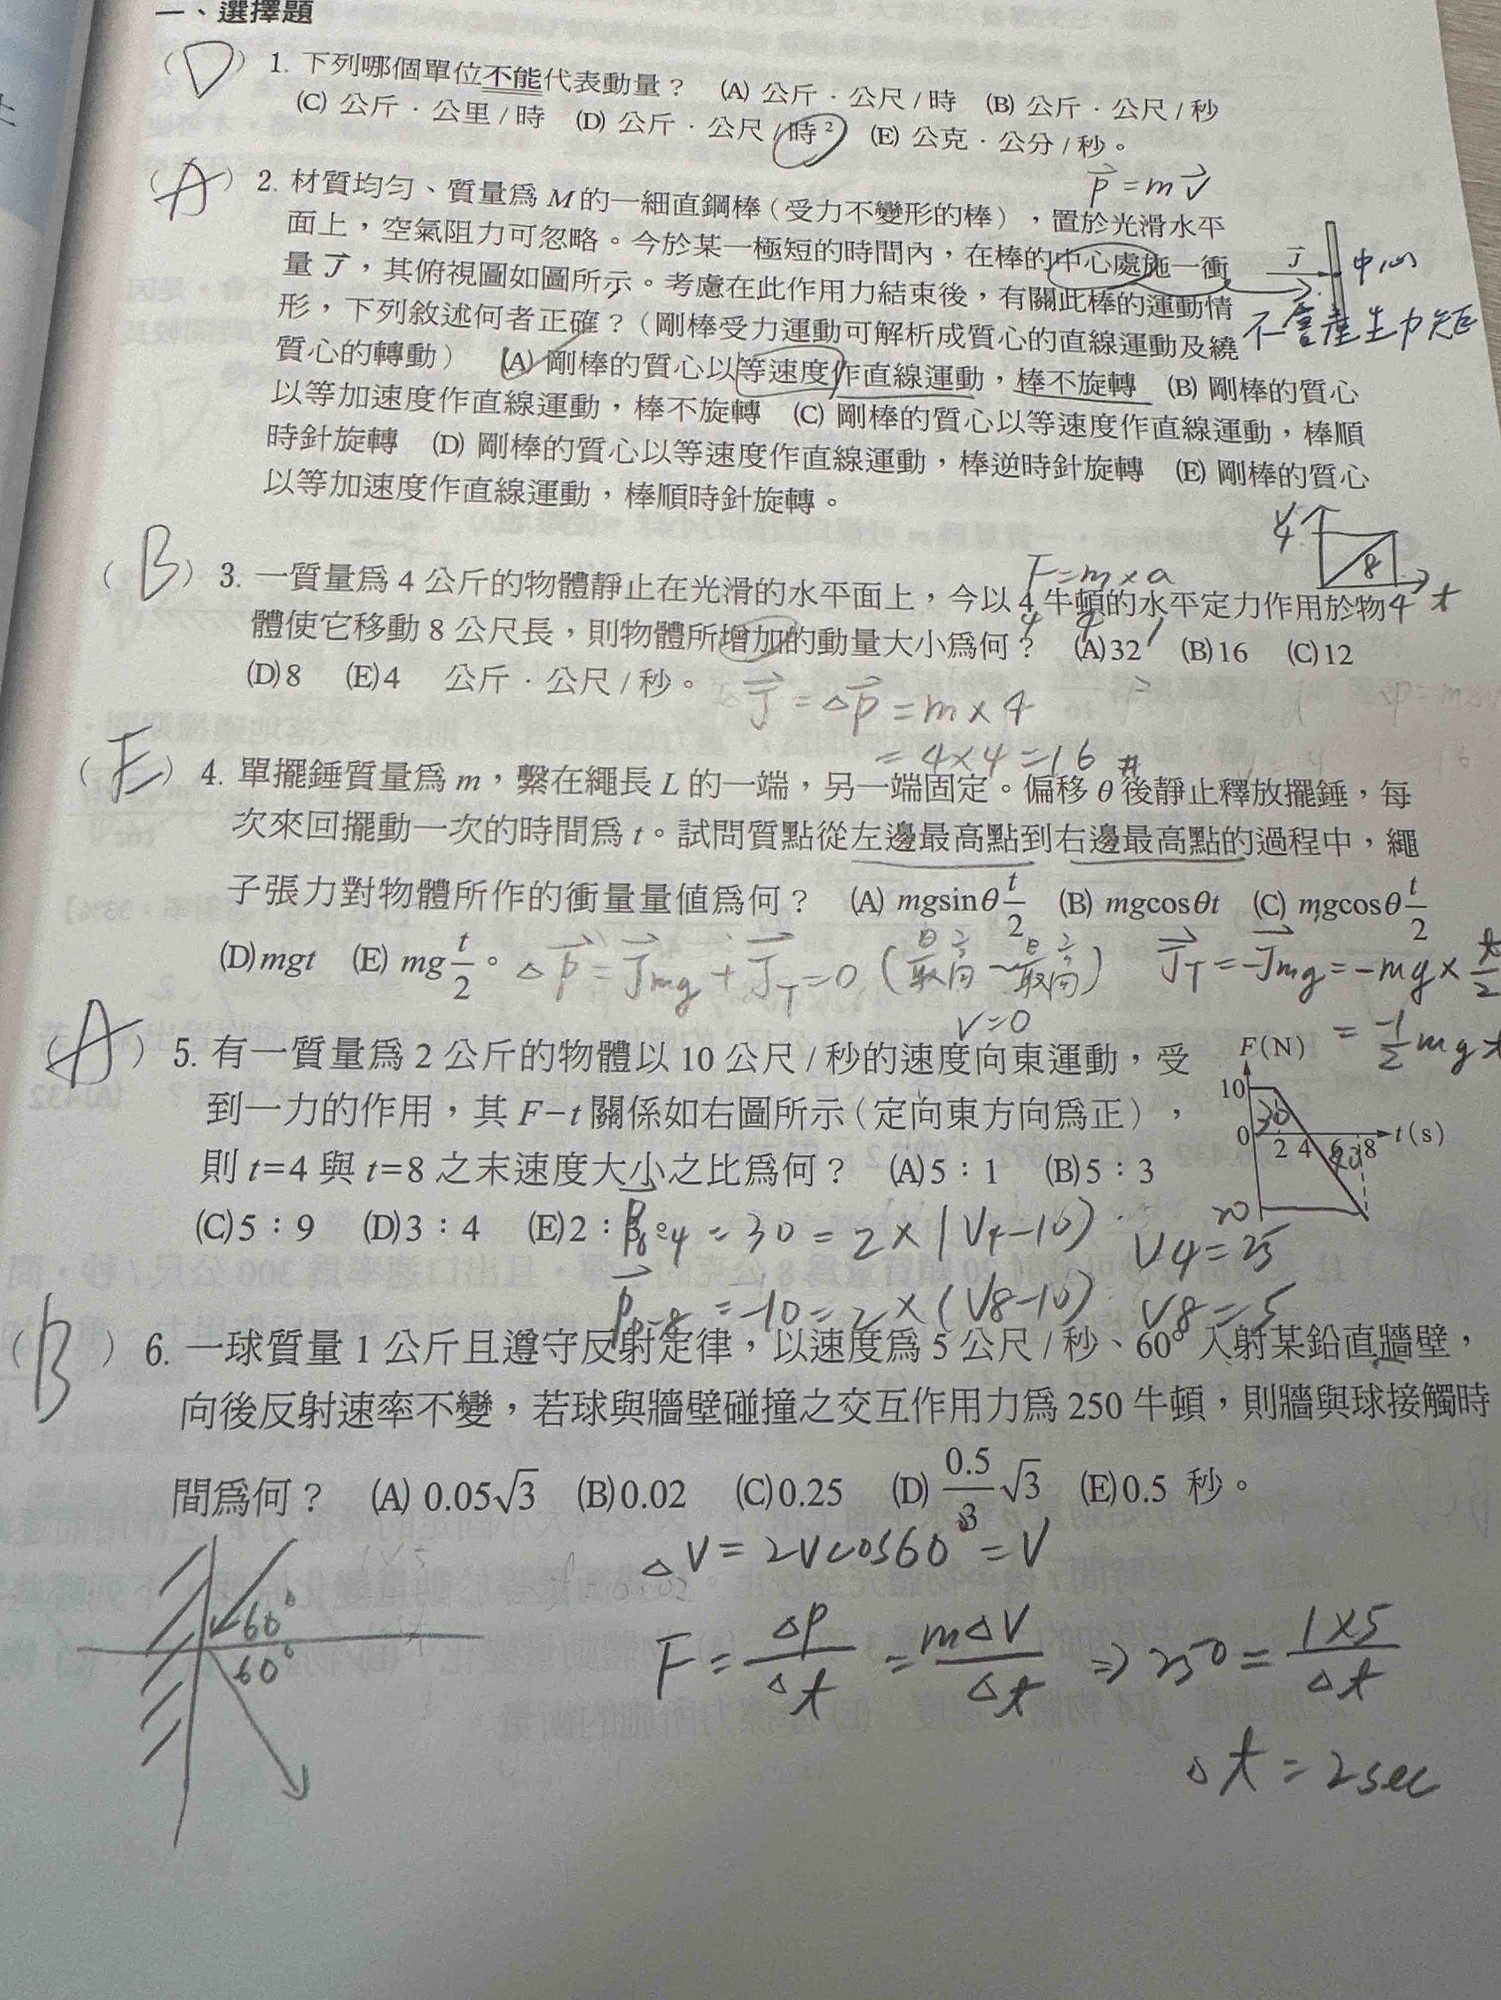 一、選擇題
( D ) 1. 下列哪個單位不能代表動量？ (A) 公斤．公尺 / 時 (B) 公斤．公尺 / 秒
(C) 公斤．公里 / 時 (D) 公斤．公尺 / 時² (E) 公克．公分 / 秒。
p = mv
( A ) 2. 材質均勻、質量為 M 的一細直鋼棒（受力不變形的棒），置於光滑水平
面上，空氣阻力可忽略。今於某一極短的時間內，在棒的中心處施一衝
J 中心
量 J，其俯視圖如圖所示。考慮在此作用力結束後，有關此棒的運動情
形，下列敘述何者正確？（剛棒受力運動可解析成質心的直線運動及繞
不會產生力矩
質心的轉動） (A) 剛棒的質心以等速度作直線運動，棒不旋轉 (B) 剛棒的質心
以等加速度作直線運動，棒不旋轉 (C) 剛棒的質心以等速度作直線運動，棒順
時針旋轉 (D) 剛棒的質心以等速度作直線運動，棒逆時針旋轉 (E) 剛棒的質心
以等加速度作直線運動，棒順時針旋轉。
V 4 8 4 t
F = m × a
( B ) 3. 一質量為 4 公斤的物體靜止在光滑的水平面上，今以 4 牛頓的水平定力作用於物
4 4 1
體使它移動 8 公尺長，則物體所增加的動量大小為何？ (A)32 (B)16 (C)12
(D)8 (E)4 公斤．公尺 / 秒。
J = ΔP = m × 4
= 4×4 = 16 #
( E ) 4. 單擺錘質量為 m，繫在繩長 L 的一端，另一端固定。偏移 θ 後靜止釋放擺錘，每
次來回擺動一次的時間為 t。試問質點從左邊最高點到右邊最高點的過程中，繩
子張力對物體所作的衝量量值為何？ (A) mgsinθ t/2 (B) mgcosθt (C) mgcosθ t/2
(D)mgt (E) mg t/2。
ΔP = Jmg + JT = 0 (最高~最高) JT = -Jmg = -mg × t/2
V=0
= -1/2 mgt
( A ) 5. 有一質量為 2 公斤的物體以 10 公尺 / 秒的速度向東運動，受
到一力的作用，其 F–t 關係如右圖所示（定向東方向為正），
則 t=4 與 t=8 之末速度大小之比為何？ (A)5：1 (B)5：3
(C)5：9 (D)3：4 (E)2：
F(N)
10
30
0 2 4 6 8 t(s)
20
P0-4 = 30 = 2 × (V4-10) V4 = 25
P0-8 = -10 = 2 × (V8-10) V8 = 5
( B ) 6. 一球質量 1 公斤且遵守反射定律，以速度為 5 公尺 / 秒、60° 入射某鉛直牆壁，
向後反射速率不變，若球與牆壁碰撞之交互作用力為 250 牛頓，則牆與球接觸時
間為何？ (A) 0.05√3 (B)0.02 (C)0.25 (D) 0.5/3 √3 (E)0.5 秒。
ΔV = 2Vcos60° = V
60°
60°
F = ΔP/Δt = mΔV/Δt ⇒ 250 = 1×5/Δt
Δt = 2sec